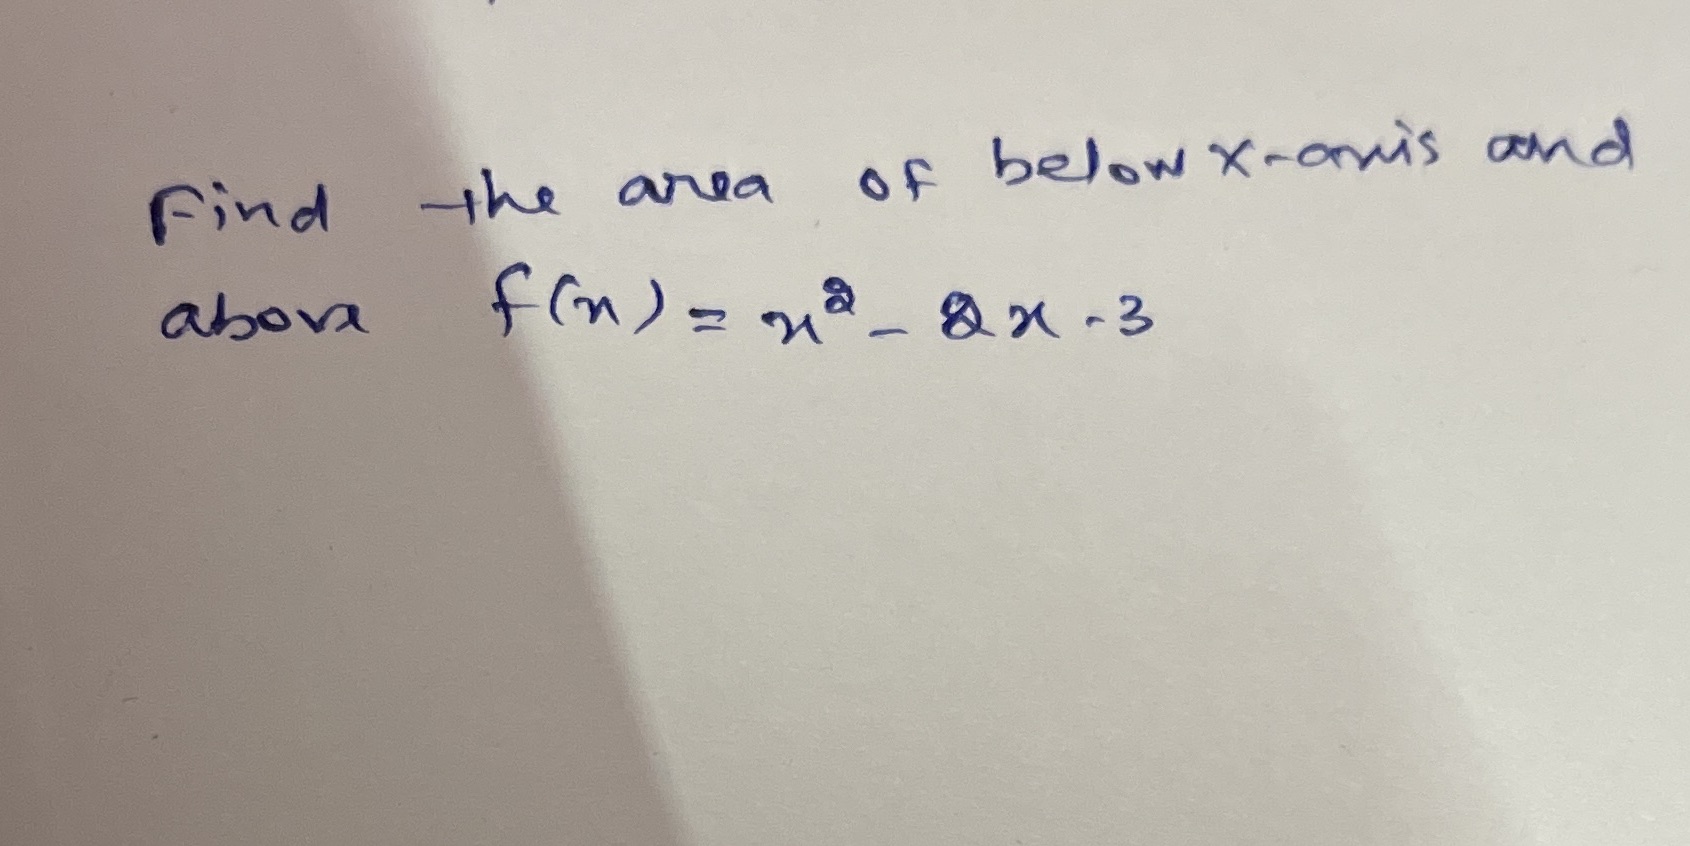 Find the area of below x-axis and
above f(x) = x² - 2x - 3